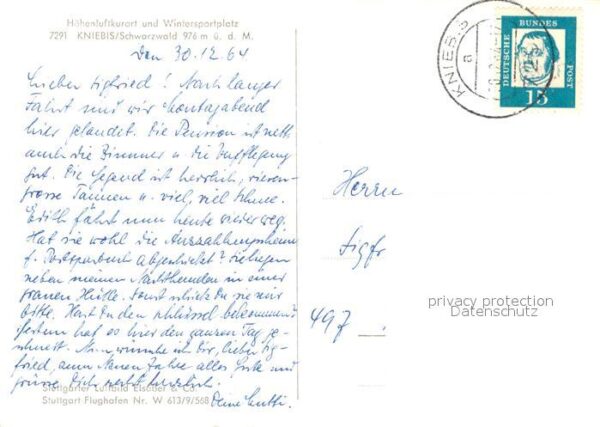 Höhenluftkurort und Wintersportplatz
7291 KNIEBIS/Schwarzwald 976 m ü. d. M.
Den 30.12.64
Lieber Sigfried! Nach langer
Fahrt sind wir Montagabend
hier gelandet. Die Pension ist nett
auch die Zimmer u die Verpflegung
gut. Die Gegend ist herrlich, riesen-
grosse Tannen u. viel, viel Schnee.
Edith fährt nun heute wieder weg.
Hat sie wohl die
f. Postsparbuch abgeschickt? Sie liegen
neben meinen Nachthemden in einer
grauen Hülle. Sonst schicke Du sie mir
bitte. Hast Du den Schlüssel bekommen?
Gestern hat es hier den ganzen Tag ge-
schneit. Nun wünsche ich Dir, lieber Sig-
fried, zum Neuen Jahre alles Gute und
grüsse Dich recht herzlich.
Deine Mutti.
Stuttgarter Luftbild Elsäßer & Co.
Stuttgart Flughafen Nr. W 613/9/568
KNIEBIS
a
DEUTSCHE BUNDES POST
15
Herrn
Sigfr
497
privacy protection
Datenschutz